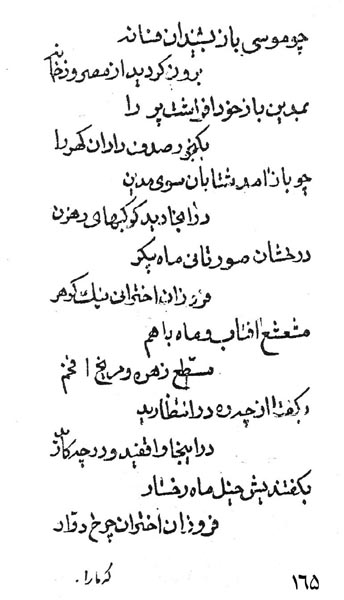 چو موسی باز بشنید آن فسانه
برون کردید از مصر و ز خانه
بمدین باز خود افراشت پر را
یکجو صدف داران گهر را
چو باز آمد شتابان سوی مدین
در آنجا دید کوکبهای رهزن
درخشان صورتانی ماه پیکر
فروزان اخترانی نیک گوهر
مشعشع آفتاب و ماه باهم
مسطع زهره و مریخ افخم
بگفتا از چه رو در انتظارید
در اینجا واقفید و در چه کارید
بگفتندیش خیل ماه رخسار
فروزان اختران چرخ دوار
که مارا.
۱۶۵